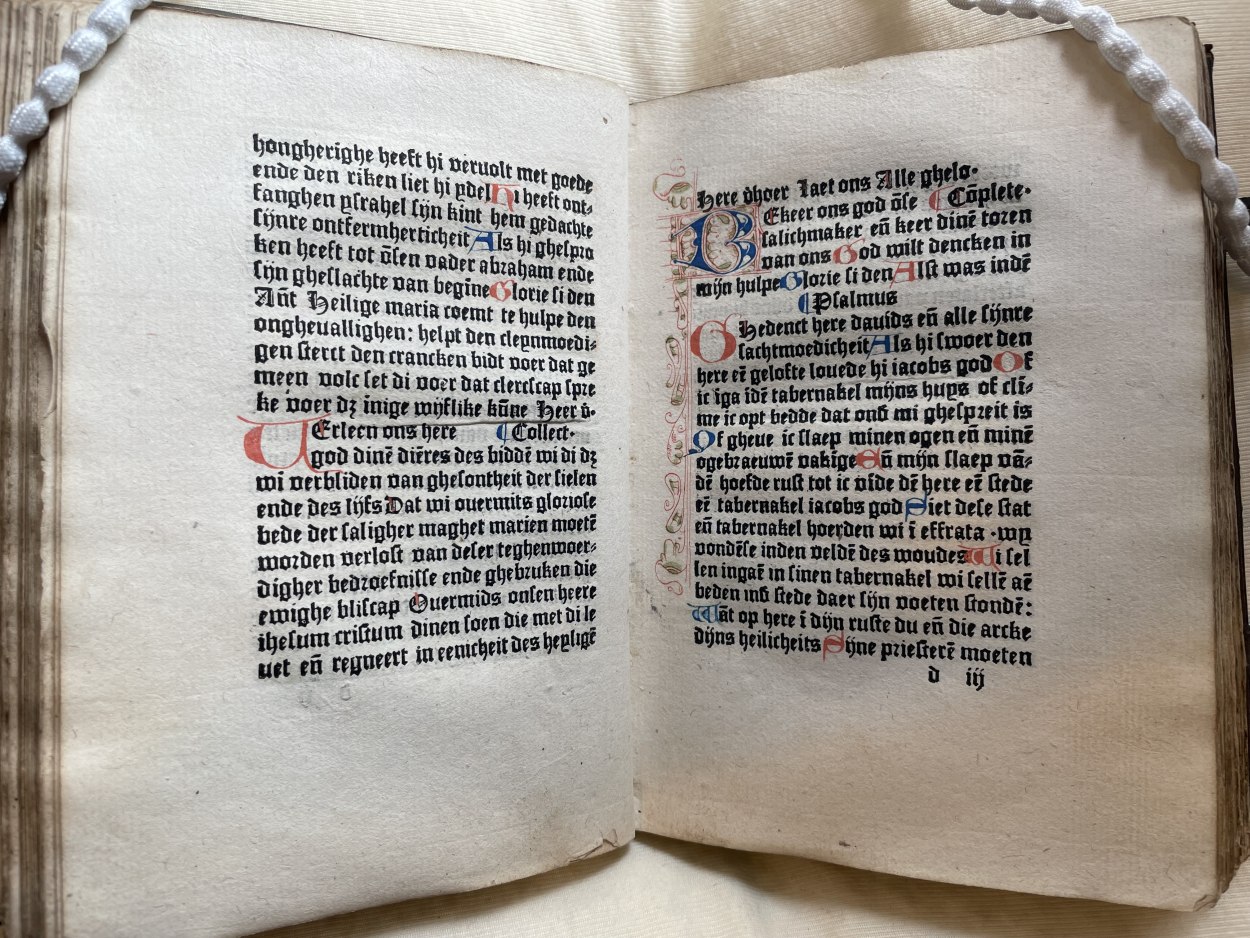 hongherighe heeft hi veruolt met goede
ende den riken liet hi ydel Hi heeft ont⸗
fanghen ysrahel sijn kint hem gedachte
sijnre ontfermherticheit Als hi ghespro
ken heeft tot ōsen vader abraham ende
sijn gheslachte van begīne Glorie si den
Añt Heilige maria coemt te hulpe den
ongheuallighen: helpt den cleynmoedi⸗
gen sterct den crancken bidt voer dat ge
meen volc set di voer dat clercscap spre
ke voer dz inige wijflike kūne Heer v̄.
VErleen ons here ⸿Collect.
god dinē diēres des biddē wi di dz
wi verbliden van ghesontheit der sielen
ende des lijfs Dat wi ouermits gloriose
bede der saligher maghet marien moetē
worden verlost van deser teghenwoer⸗
digher bedroefnisse ende ghebruken die
ewighe bliscap Ouermids onsen heere
ihesum cristum dinen soen die met di le
uet eñ regneert in eenicheit des heyligē
here v̄hoer Laet ons Alle ghelo.
BEkeer ons god ōse ⸿Cōplete.
salichmaker eñ keer dinē toren
van ons God wilt dencken in
mijn hulpe Glorie si den Alst was indē
⸿Psalmus
GHedenct here dauids eñ alle sijnre
sachtmoedicheit Als hi swoer den
here eñ gelofte louede hi iacobs god Of
ic īga īdē tabernakel mijns huys of cli⸗
me ic opt bedde dat ond mi ghespreit is
Of gheue ic slaep minen ogen eñ minē
ogebraeuwē vakige Eñ mijn slaep vā⸗
dē hoefde rust tot ic vīde dē here eē stede
eē tabernakel iacobs god Siet dese stat
eñ tabernakel hoerden wi ī effrata .wy
vondēse inden veldē des woudes Wi sel
len ingaē in sinen tabernakel wi sellē aē
beden ind stede daer sijn voeten stondē:
Wāt op here ī dijn ruste du eñ die arcke
dijns heilicheits Sijne priesterē moeten
d iij